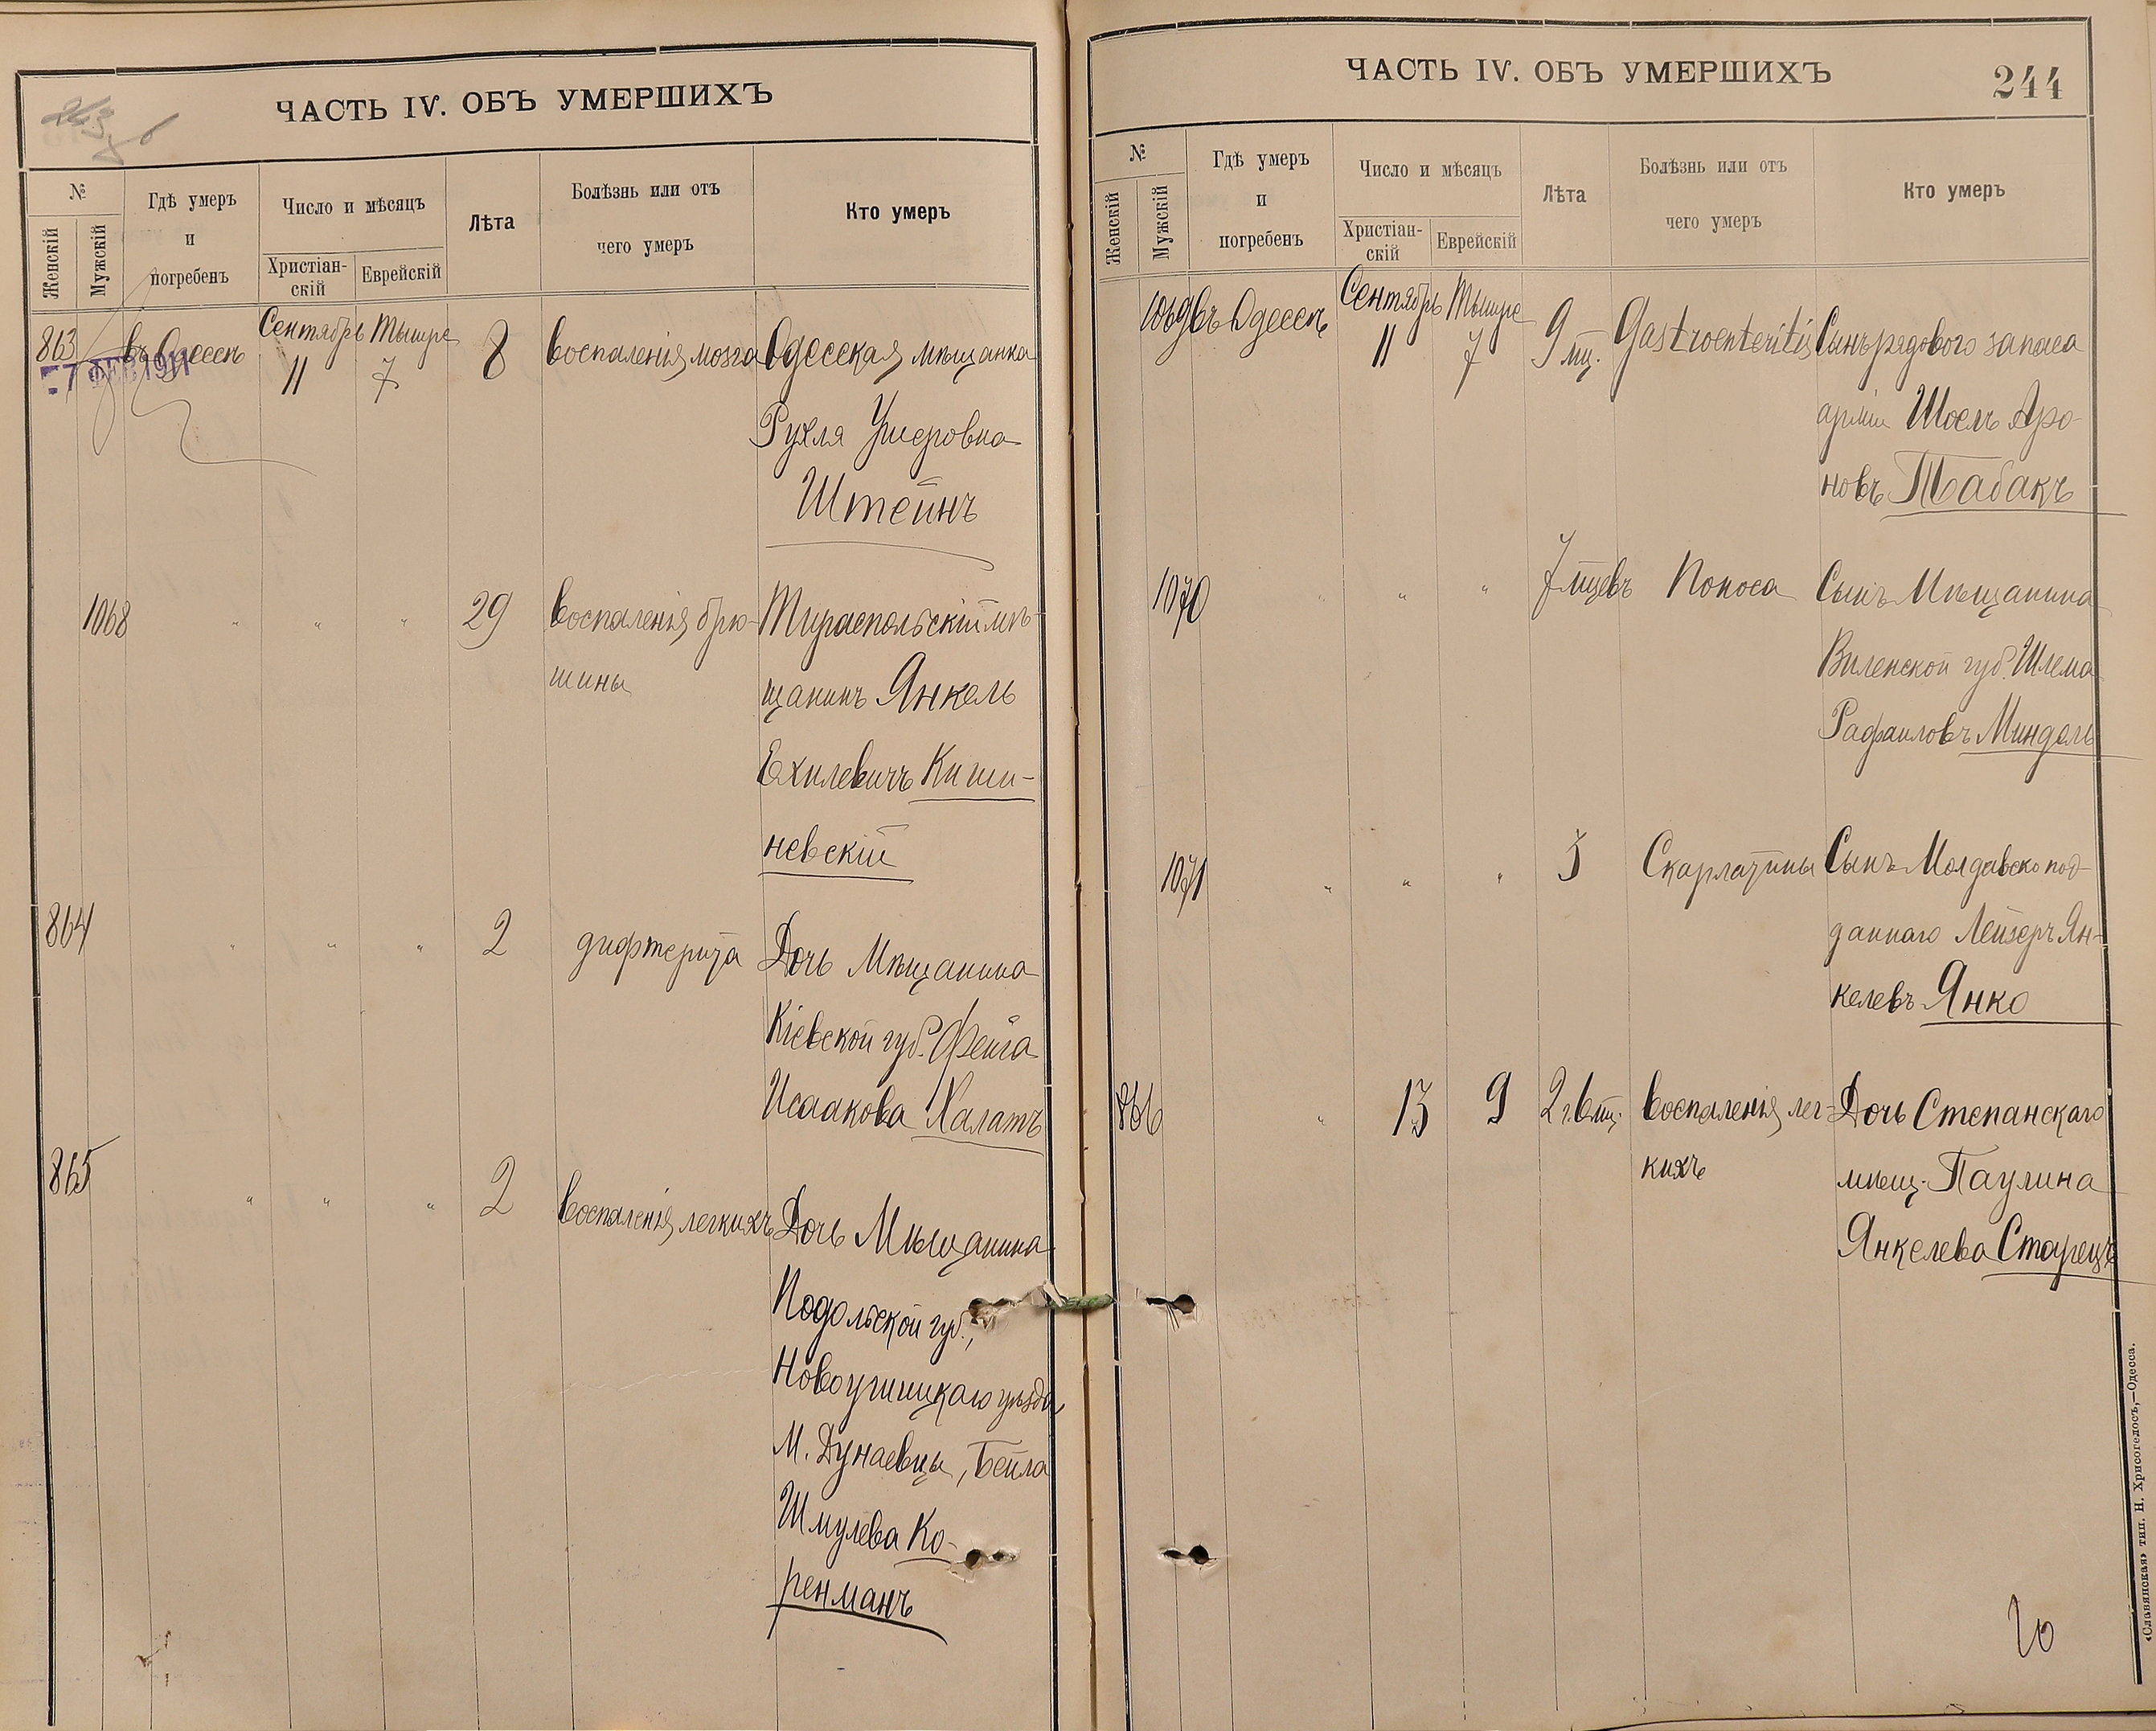 ЧАСТЬ IV. ОБЪ УМЕРШИХЪ
№
Женскій
Мужскій
Гдѣ умеръ
и
погребенъ
Число и мѣсяцъ
Христіан-
скій
Еврейскій
Лѣта
Болѣзнь или отъ
чего умеръ
Кто умеръ
863 въ Одессѣ Сентябрь Тышре 8 воспаленія мозга Одесская мѣщанка
-7 ФЕВ 1911
11 7
Рухля Ушеровна
Штейнъ
1068 " " " 29 воспаленія брю- Тираспольскій мѣ-
шины щанинъ Янкель
Ехилевичъ Киши-
невскій
864 " " " 2 дифтерита Дочь Мѣщанина
Кіевской губ. Фейга
Исаакова Халатъ
865 " " " 2 воспаленія легкихъ Дочь Мѣщанина
Подольской губ.,
Новоушицкаго уѣзда
М. Дунаевцы, Бейла
Шмулева Ко-
ренманъ
ЧАСТЬ IV. ОБЪ УМЕРШИХЪ
244
№
Женскій
Мужскій
Гдѣ умеръ
и
погребенъ
Число и мѣсяцъ
Христіан-
скій
Еврейскій
Лѣта
Болѣзнь или отъ
чего умеръ
Кто умеръ
1069 въ Одессѣ Сентябрь Тышре 9 мц. Gastroenteritis Сынъ рядового запаса
11 7
арміи Шоелъ Аро-
новъ Табакъ
1070 " " " 7 мцевъ Поноса Сынъ Мѣщанина
Виленской губ. Шлема
Рафаиловъ Миндель
1071 " " " 5 Скарлатины Сынъ Молдавско под-
даннаго Лейзеръ Ян-
келевъ Янко
866 " 13 9 2 г. 6 мц. воспаленія лег- Дочь Степанскаго
кихъ мѣщ. Паулина
Янкелева Старецъ
«Славянская» тип. Н. Хрисогелосъ,—Одесса.